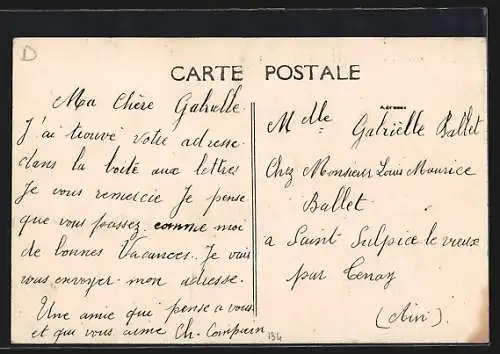 D
CARTE POSTALE
Ma Chère Gabrielle
J'ai trouvé votre adresse
dans la boite aux lettres
Je vous remercie Je pense
que vous passez comme moi
de bonnes Vacances. Je vais
vous envoyer mon adresse.
Une amie qui pense a vous
et qui vous aime Ch.
134
Adresse
Mlle Gabriëlle Ballet
Chez Monsieur Louis Maurice
Ballet
a Saint Sulpice le vieux
par Tenay
(Ain)